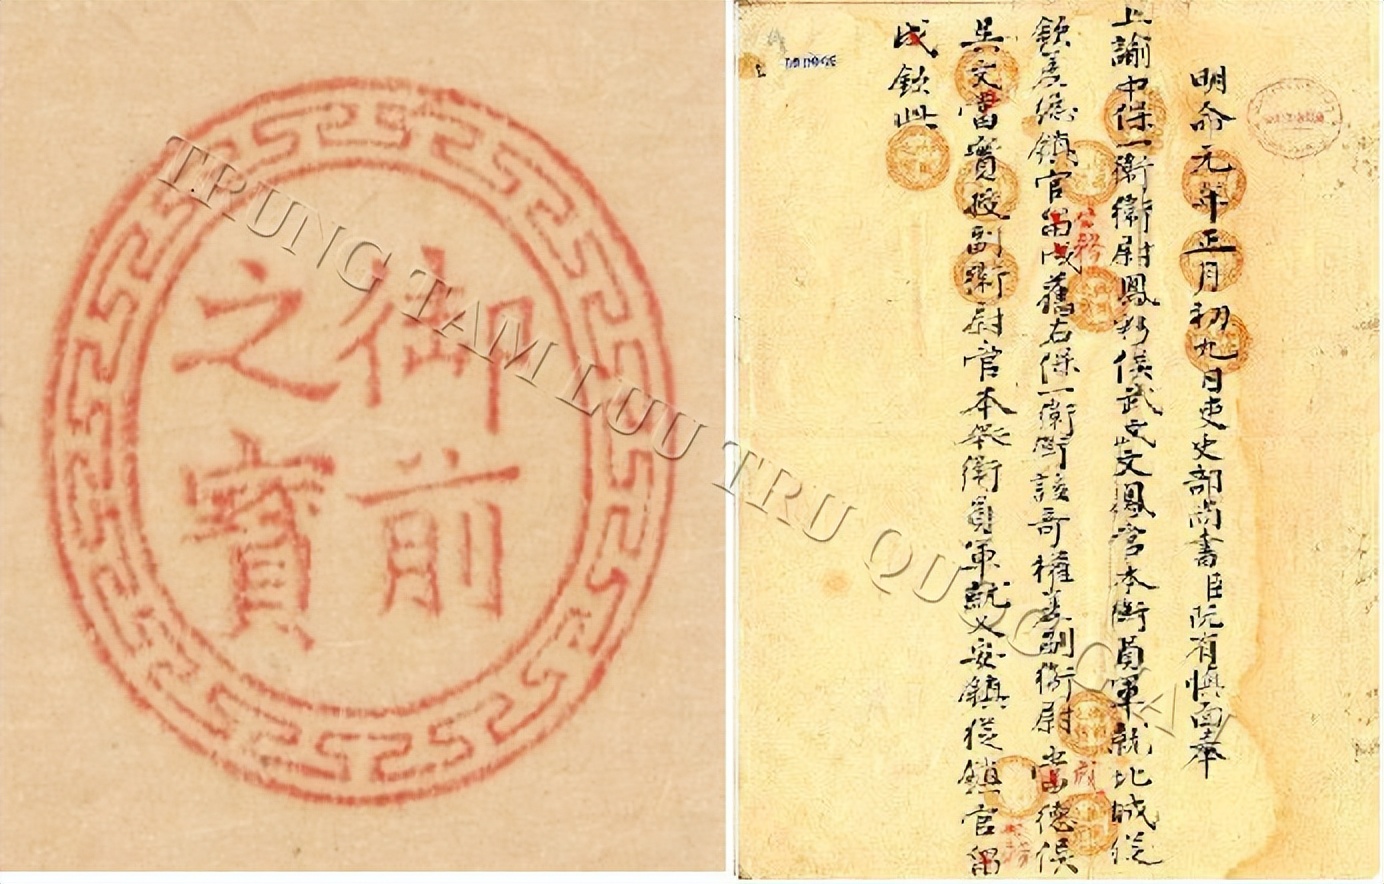 御前
之寶
TRUNG TAM LUU TRU QUOC GIA
明命元年正月初九日吏部尚書臣阮有慎面奉
上諭中保一衛衛尉鳳彩侯武文鳳宜本衛員軍就北城從
欽差總鎮官留戍舊右保一衛衛該奇權差副衛尉當德侯
吳文當實授副衛尉官本率衛員軍就乂安鎮從鎮官留
戍欽此
公務
戍